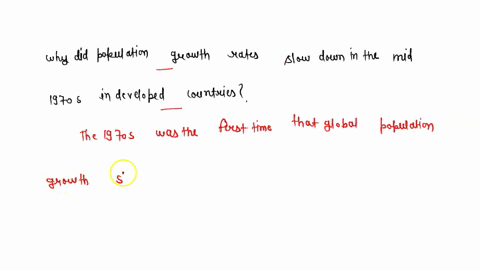 why did population growth rates slow down in the mid
1970s in developed countries?
The 1970s was the first time that global population
growth s